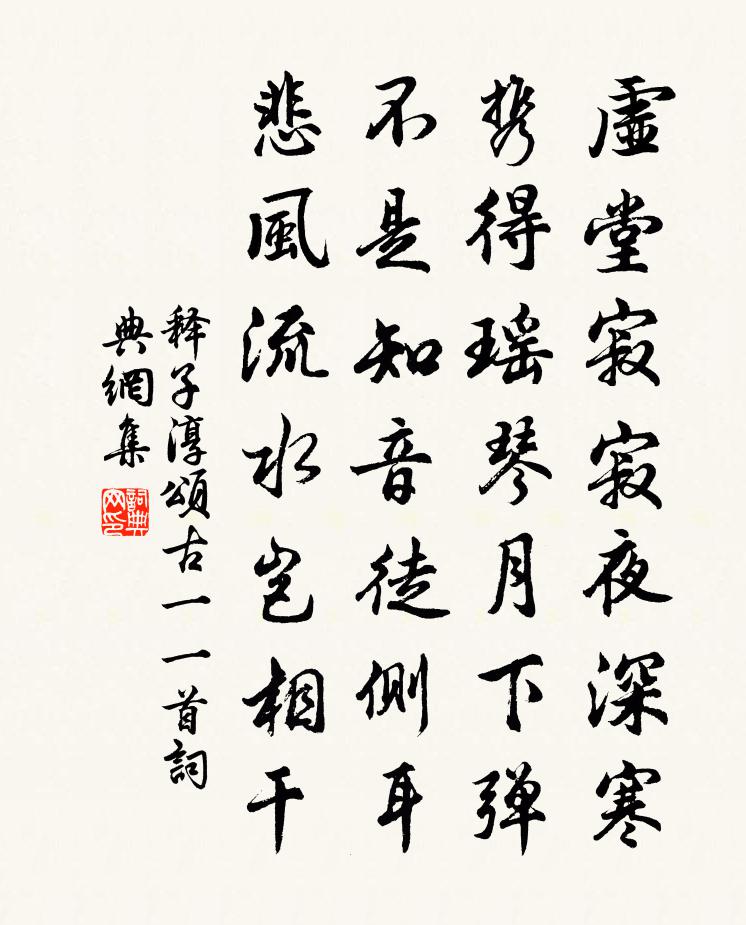 虛堂寂寂夜深寒
携得瑶琴月下弹
不是知音徒側耳
悲風流水岂相干
释子淳頌古一一首詞
典網集
詞典
网印